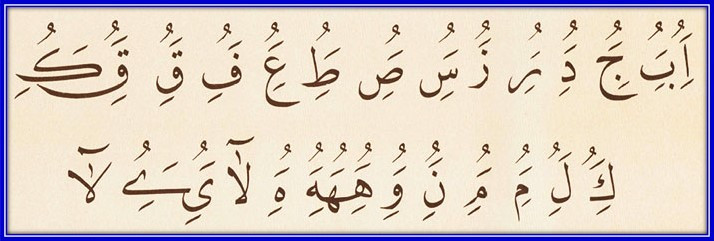 اَُِ بَُِ جَُِ دَُِ رَُِ زَُِ سَُِ صَُِ طَُِ عَُِ فَُِ قَُِ قَُِ كَُِ
كَُِ لَُِ مَُِ مَُِ نَُِ وَُِ هَُِهَُِهَُِ هَُِ لآ يَُِ ےَُِ لآ